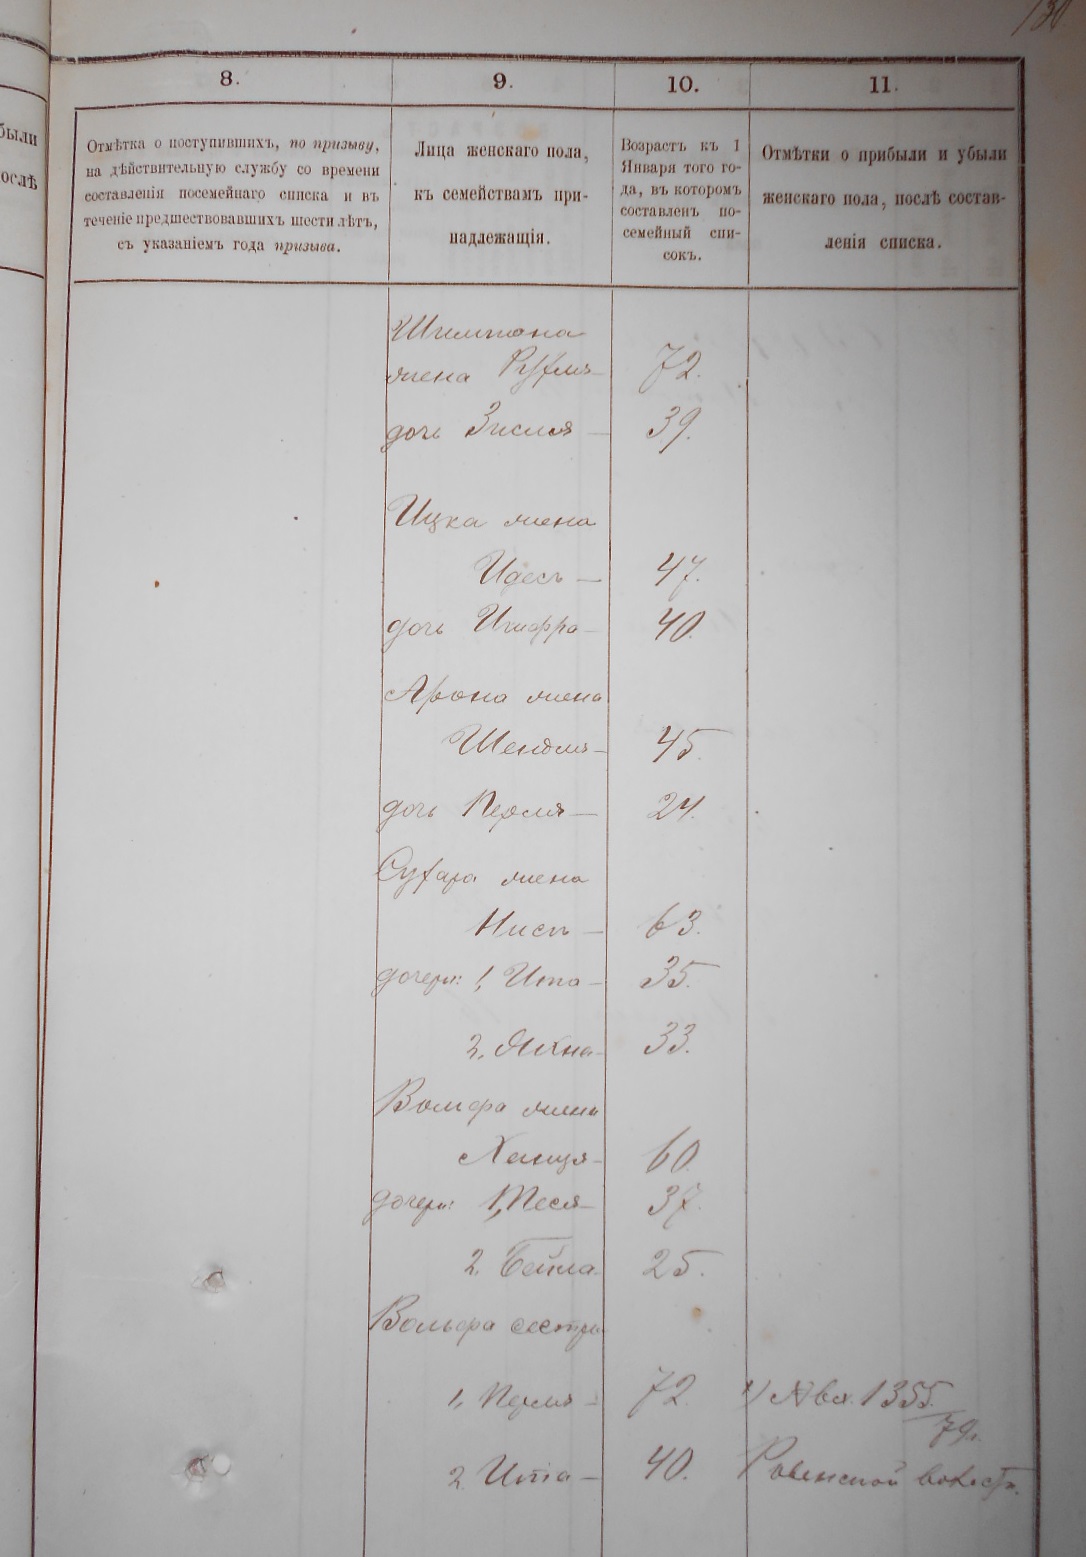 130
были
ослѣ
8.
9.
10.
11.
Отмѣтка о поступившихъ, по призыву,
на дѣйствительную службу со времени
составленія посемейнаго списка и въ
теченіе предшествовавшихъ шести лѣтъ,
съ указаніемъ года призыва.
Лица женскаго пола,
къ семействамъ при-
надлежащія.
Возрастъ къ 1
Января того го-
да, въ которомъ
составленъ по-
семейный спи-
сокъ.
Отмѣтки о прибыли и убыли
женскаго пола, послѣ состав-
ленія списка.
жена Рухля 72.
дочь Зисля 39.
Ицка жена
Идесъ 47.
дочь 40.
Арона жена
Шендля 45.
дочь Перля 24.
жена
Нись 63.
дочери: 1, Ита 35.
2. Яхна 33.
Вольфа жена
Ханця 60.
дочери: 1, Теся 37.
2. Бейла 25.
Вольфа сестры
1, Перля 72. 1) 1355.
79.
2. Ита 40. Ровенской